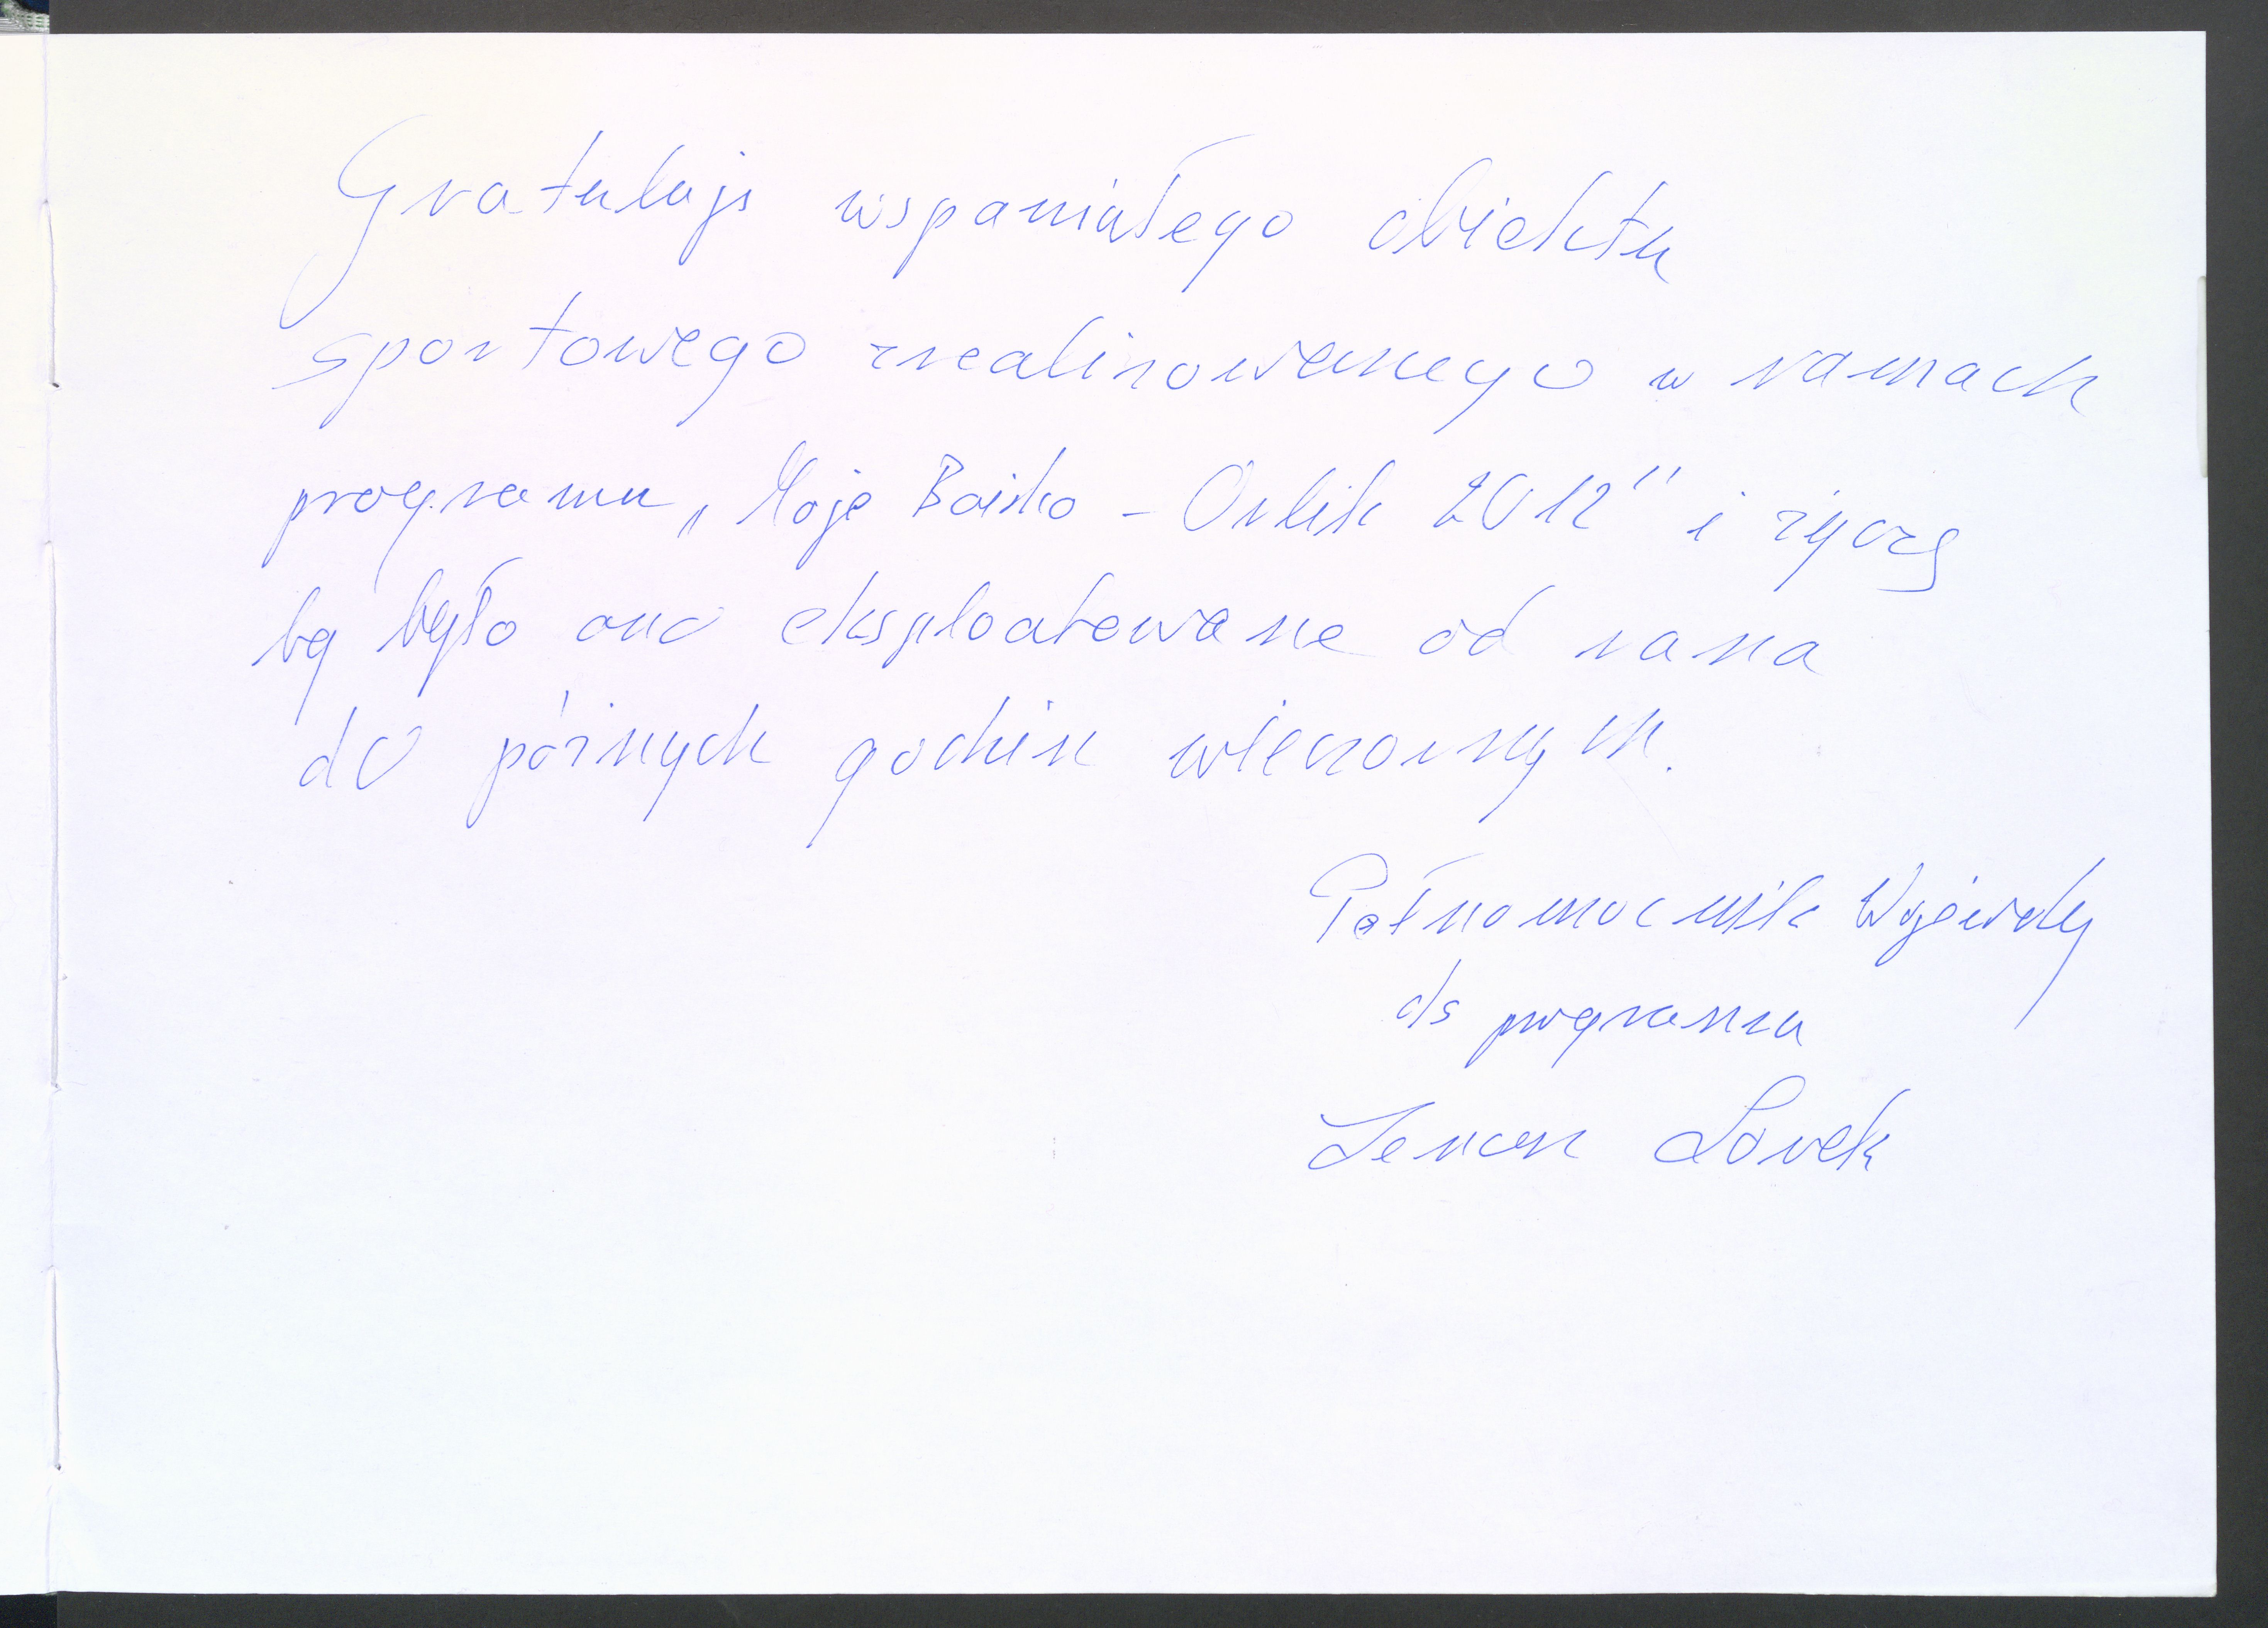 Gratuluję wspaniałego obiektu
sportowego zrealizowanego w ramach
programu „Moje Boisko – Orlik 2012" i życzę
by było ono eksploatowane od rana
do późnych godzin wieczornych.
Pełnomocnik Wojewody
ds programu
Zenon Sorek